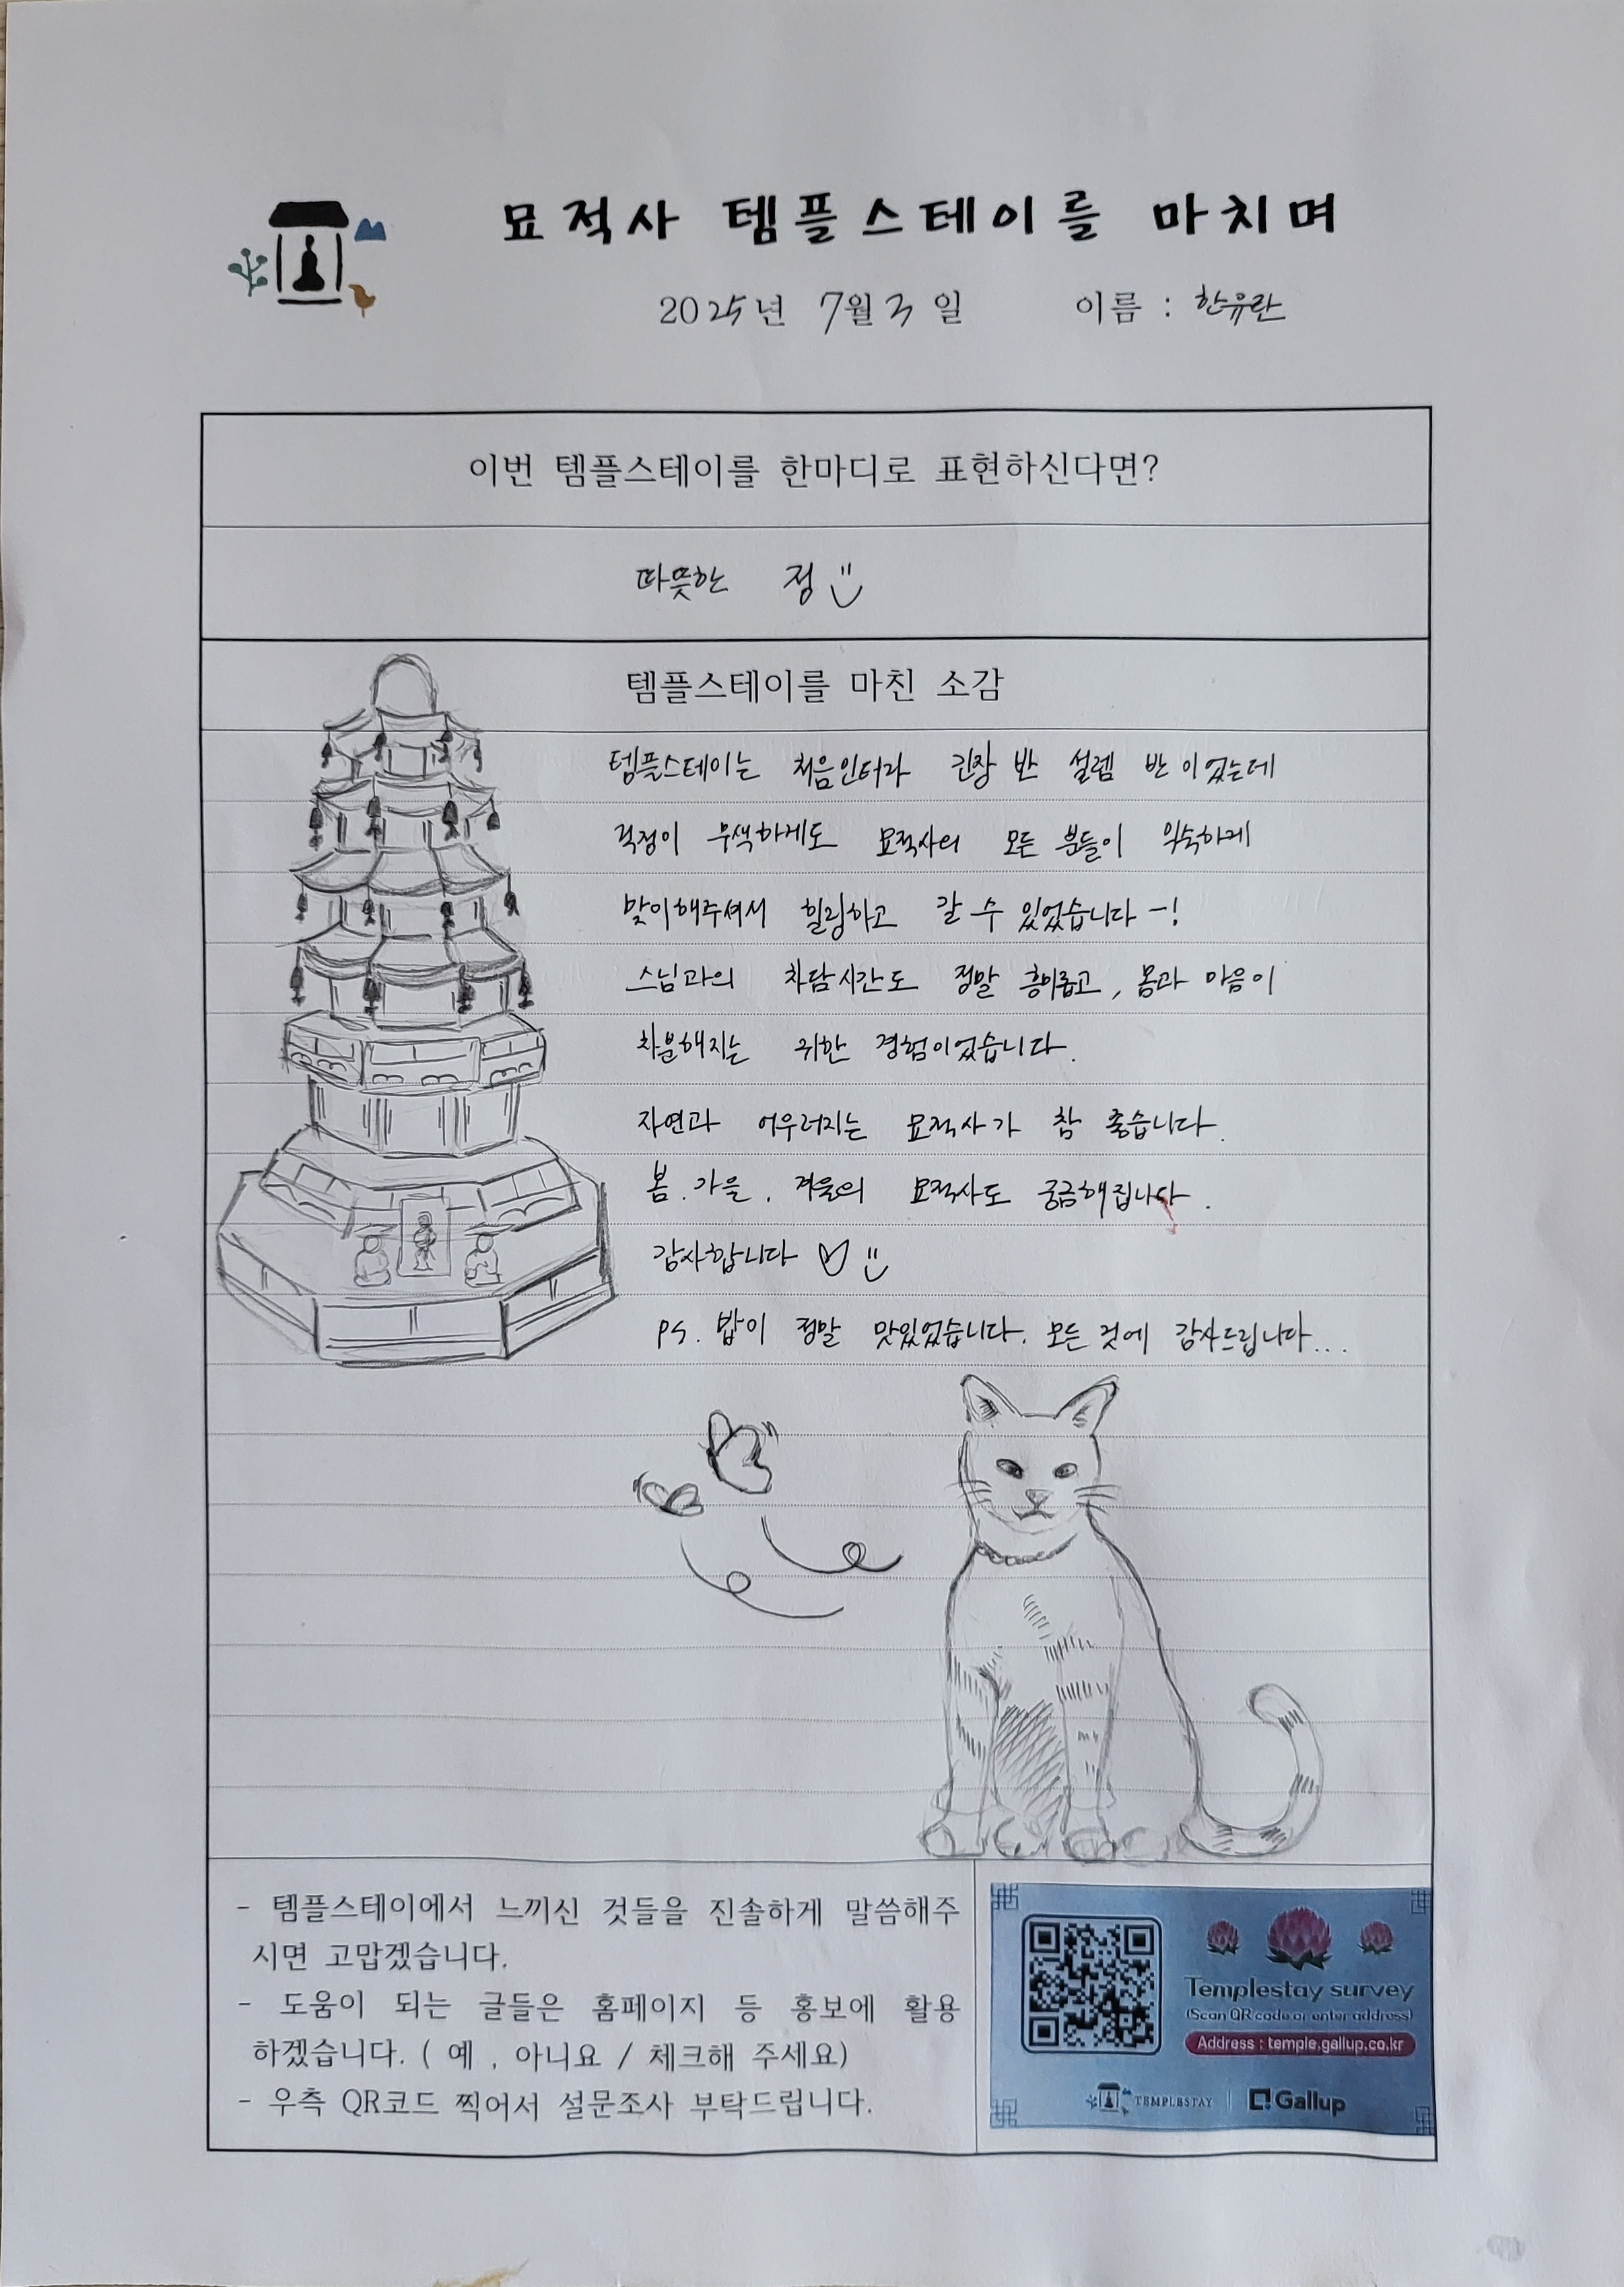 묘적사 템플스테이를 마치며
2025년 7월 3일 이름 : 한유란
이번 템플스테이를 한마디로 표현하신다면?
따뜻한 정
템플스테이를 마친 소감
템플스테이는 처음인터라 긴장 반 설렘 반이었는데
걱정이 무색하게도 묘적사의 모든 분들이 익숙하게
맞이해주셔서 힐링하고 갈 수 있었습니다-!
스님과의 차담시간도 정말 흥미롭고, 몸과 마음이
차분해지는 귀한 경험이었습니다.
자연과 어우러지는 묘적사가 참 좋습니다.
봄, 가을, 겨울의 묘적사도 궁금해집니다.
감사합니다
ps. 밥이 정말 맛있었습니다. 모든 것에 감사드립니다...
- 템플스테이에서 느끼신 것들을 진솔하게 말씀해주
시면 고맙겠습니다.
- 도움이 되는 글들은 홈페이지 등 홍보에 활용
하겠습니다. ( 예 , 아니요 / 체크해 주세요)
- 우측 QR코드 찍어서 설문조사 부탁드립니다.
Templestay survey
(Scan QR code or enter address)
Address : temple.gallup.co.kr
TEMPLESTAY
Gallup